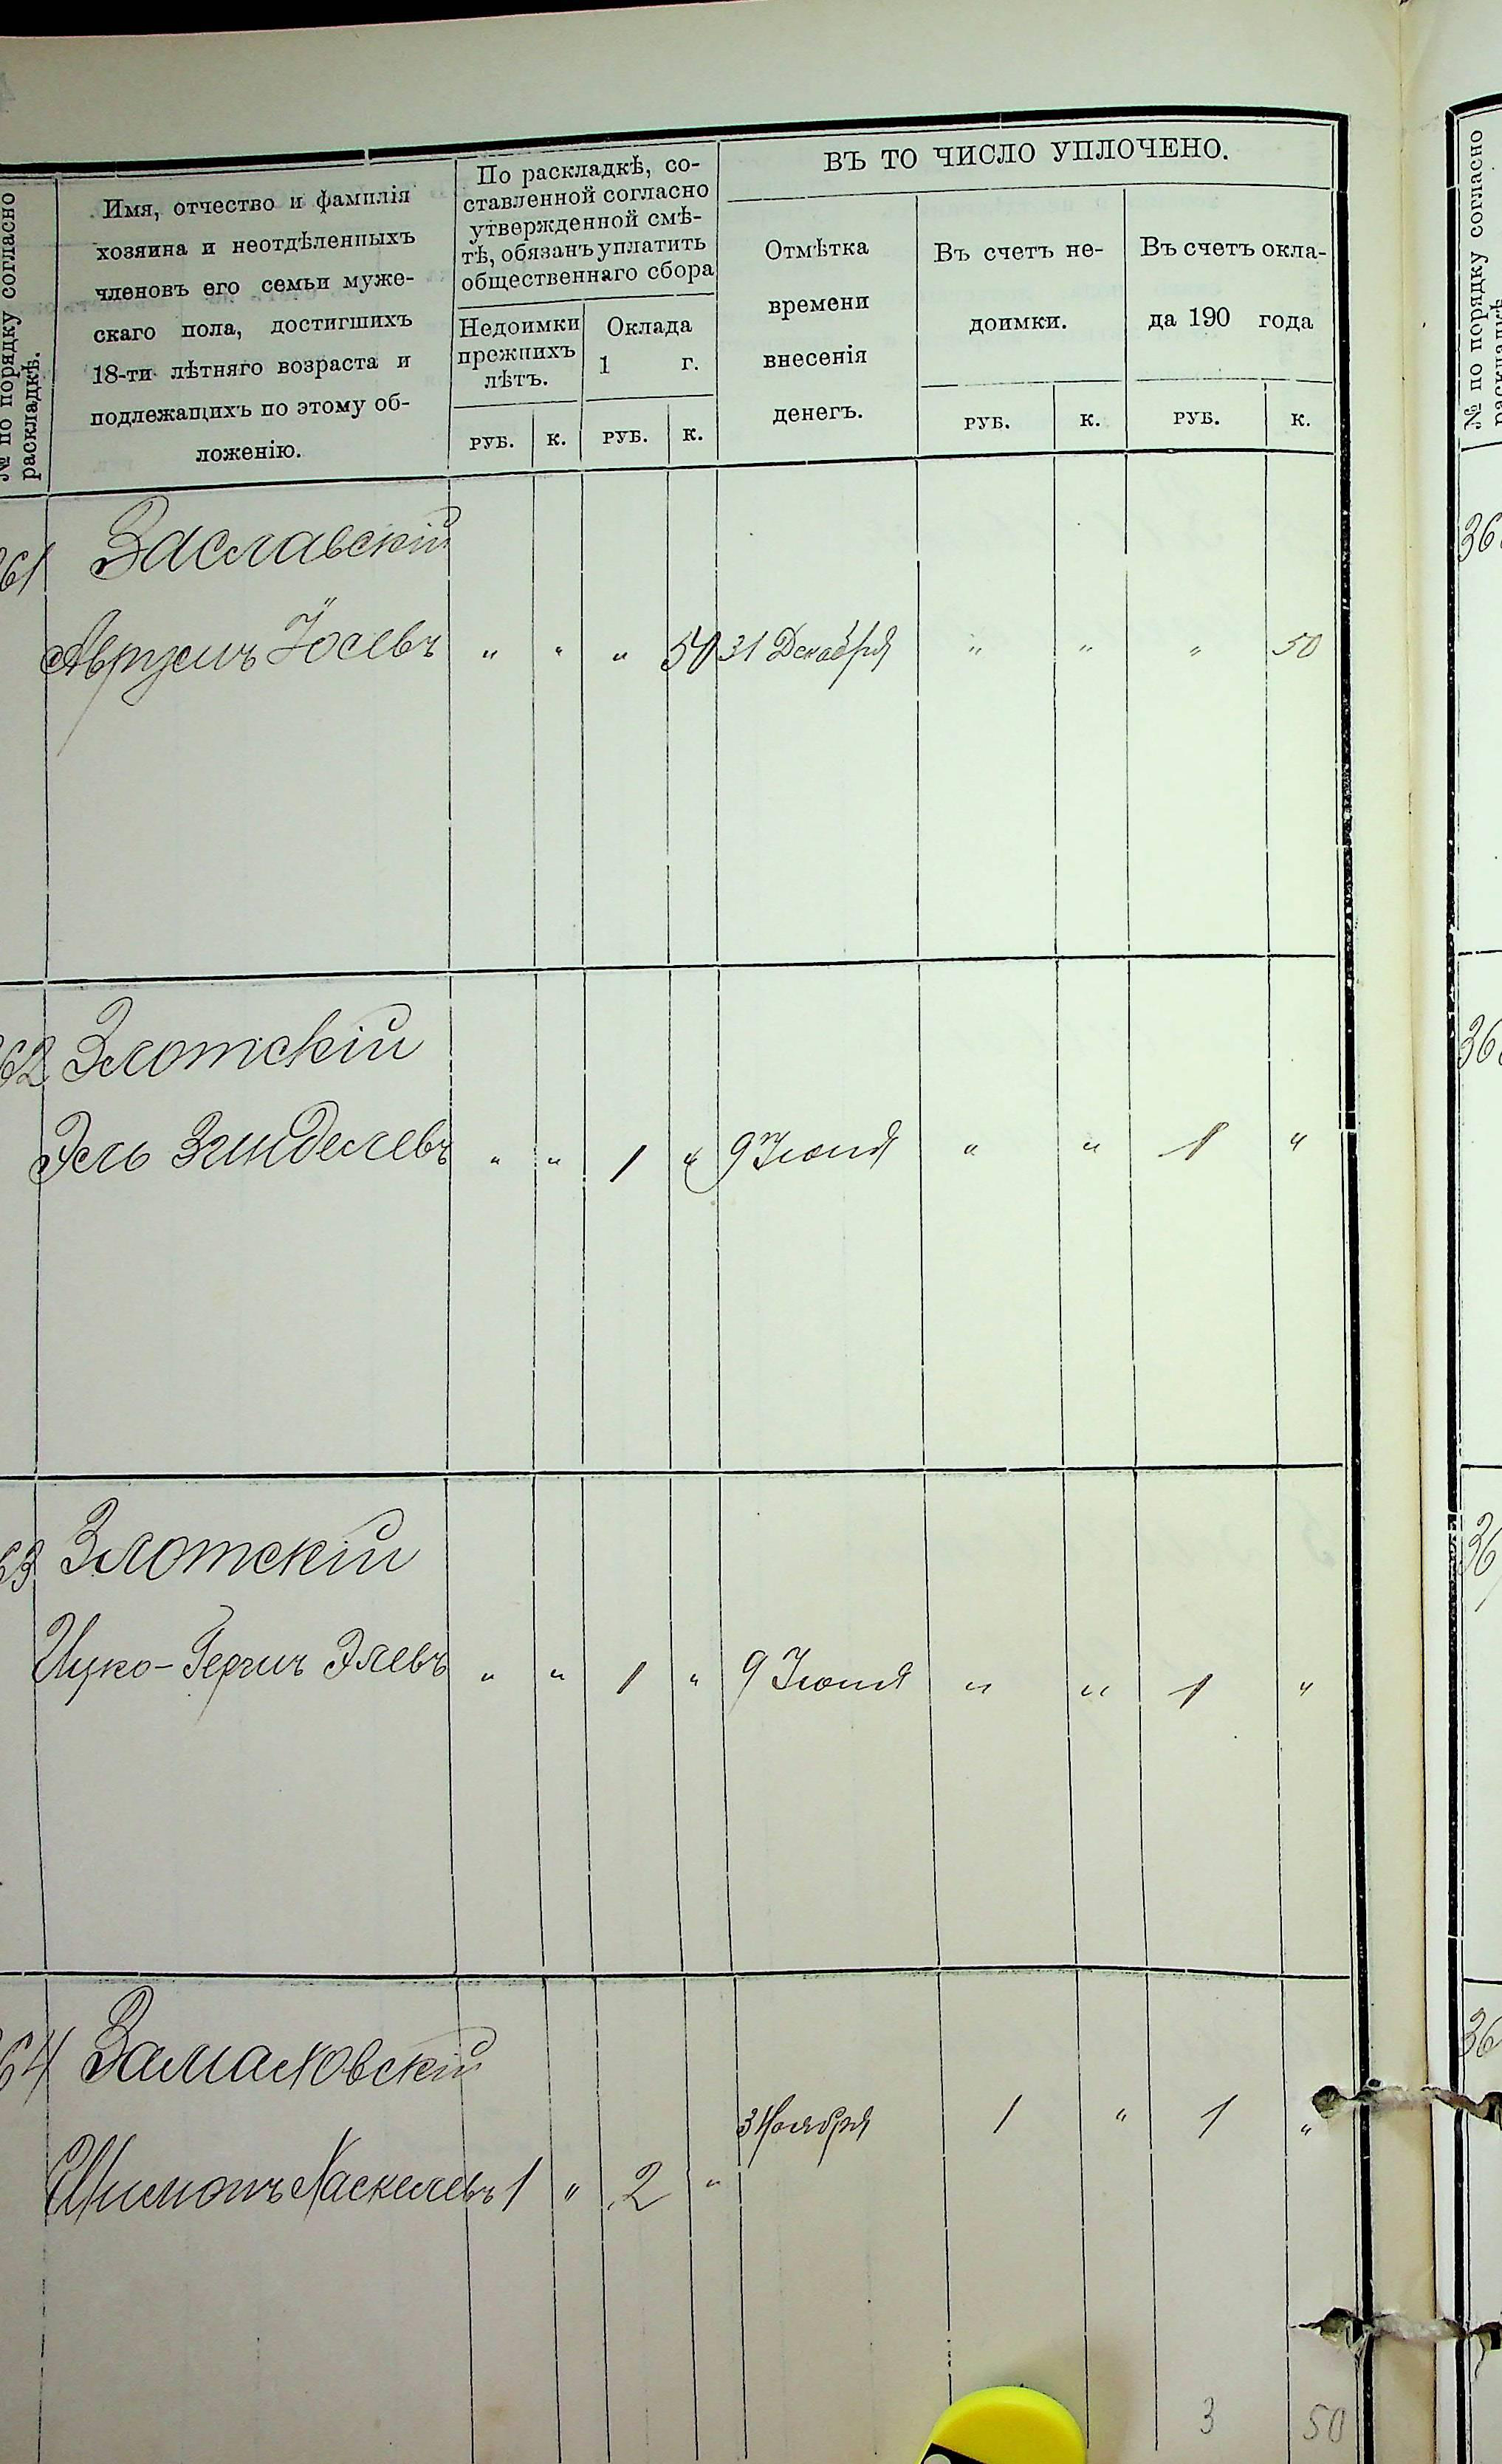 № по порядку согласно
раскладкѣ.
Имя, отчество и фамилія
хозяина и неотдѣленныхъ
членовъ его семьи муже-
скаго пола, достигшихъ
18-ти лѣтняго возраста и
подлежащихъ по этому об-
ложенію.
По раскладкѣ, со-
ставленной согласно
утвержденной смѣ-
тѣ, обязанъ уплатить
общественнаго сбора
Недоимки
прежнихъ
лѣтъ.
Оклада
1 г.
РУБ. К. РУБ. К.
ВЪ ТО ЧИСЛО УПЛОЧЕНО.
Отмѣтка
времени
внесенія
денегъ.
Въ счетъ не-
доимки.
Въ счетъ окла-
да 190 года
РУБ. К. РУБ. К.
№ по порядку согласно
раскладкѣ
361 Заславскій
Аврумъ Іосевъ " " " 50 31 Декабря " " " 50
362 Злотскій
Эль Зинделевъ " " 1 " 9 Іюня " " 1 "
363 Злотскій
Ицко-Гершъ Элевъ " " 1 " 9 Іюня " " 1 "
364 Замаховскій
Шимонъ Хаскелевъ 1 " 2 " 3 Ноября 1 " 1 "
3 50